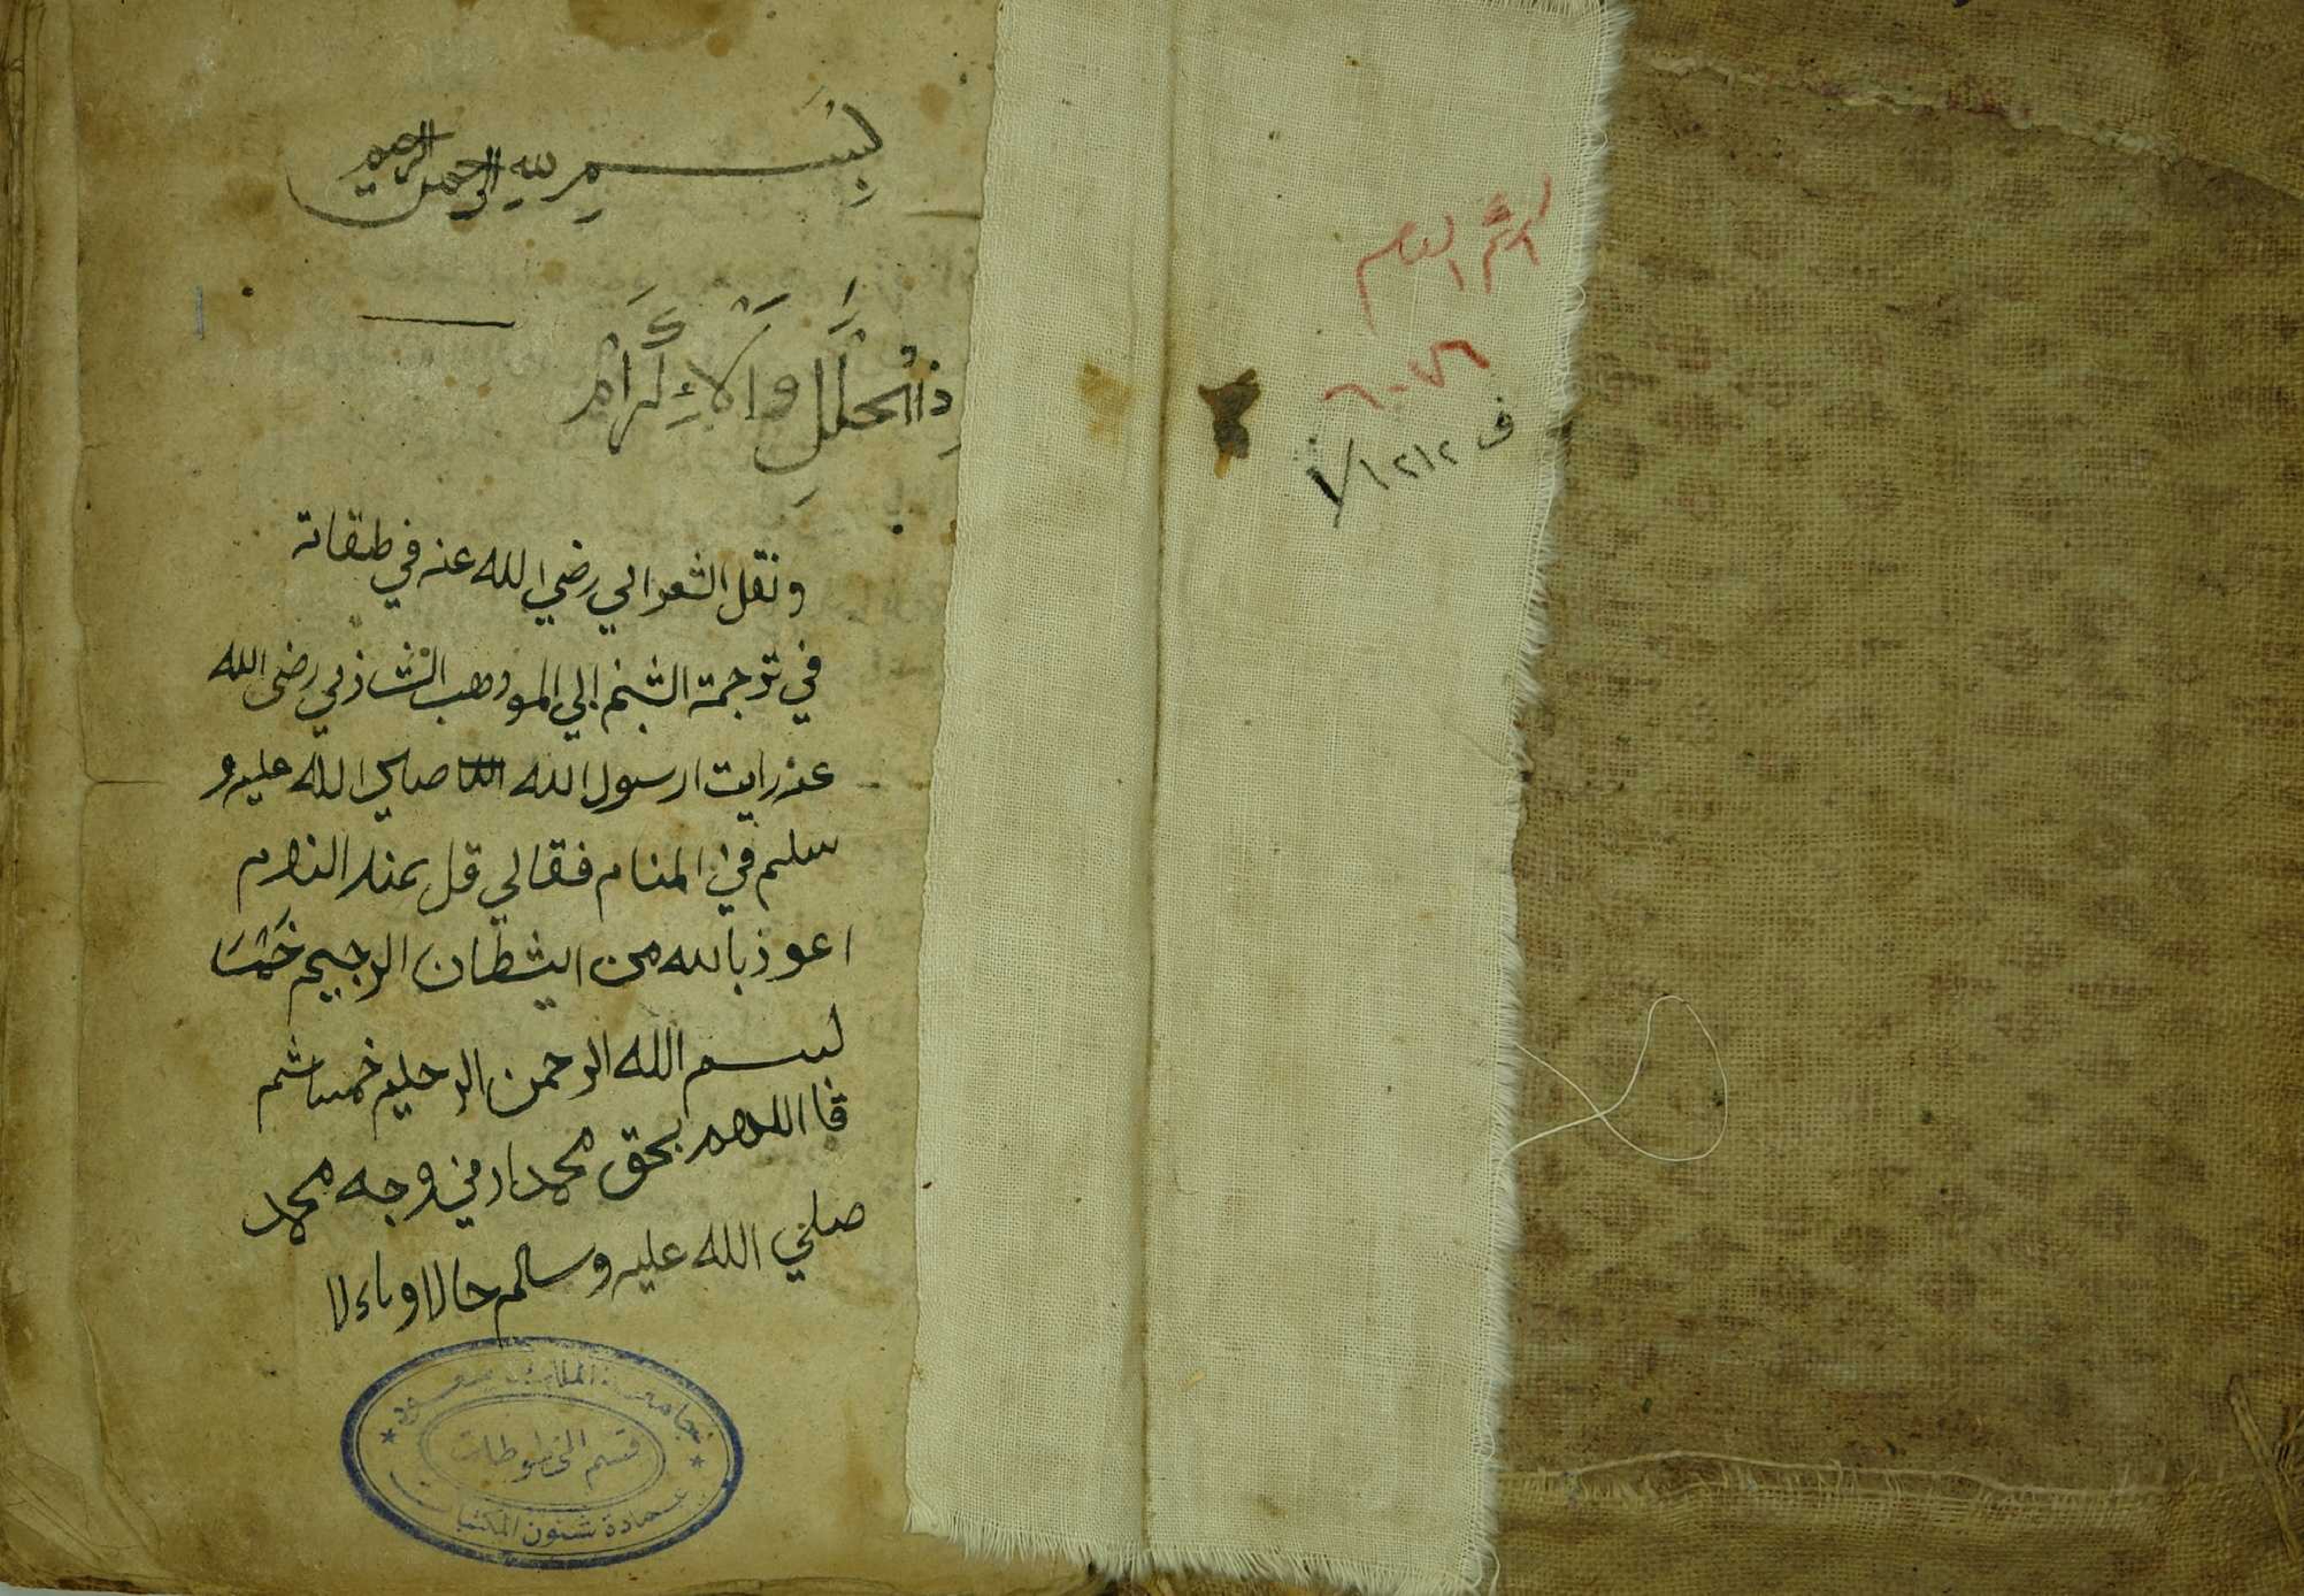 بِسمِ لله الرحمن الرحيم
ذالجلَلِ وَالإِكرَام
ونقل الشعراني رضي الله عنه في طبقاته
في ترجمة الشيخ ابي المووهب الشاذلي رضى الله
عنه رايت ارسول الله صلي الله عليه و
سلم في المنام فقالي قل عند النوم
اعوذ بالله من الشطان الرجيم خَمْسَا
بسم الله الرحمن الرحيم خمسا ثم
قا اللهم بحق محمد ارني وجه محمد
صلي الله عليه وسلم حالا وماءلا
جامعة الملك سعود
قسم المخطوطات
عمادة شئون المكتبات
الرقم العام
٦٠٧٦
ف ١/١٢١٢